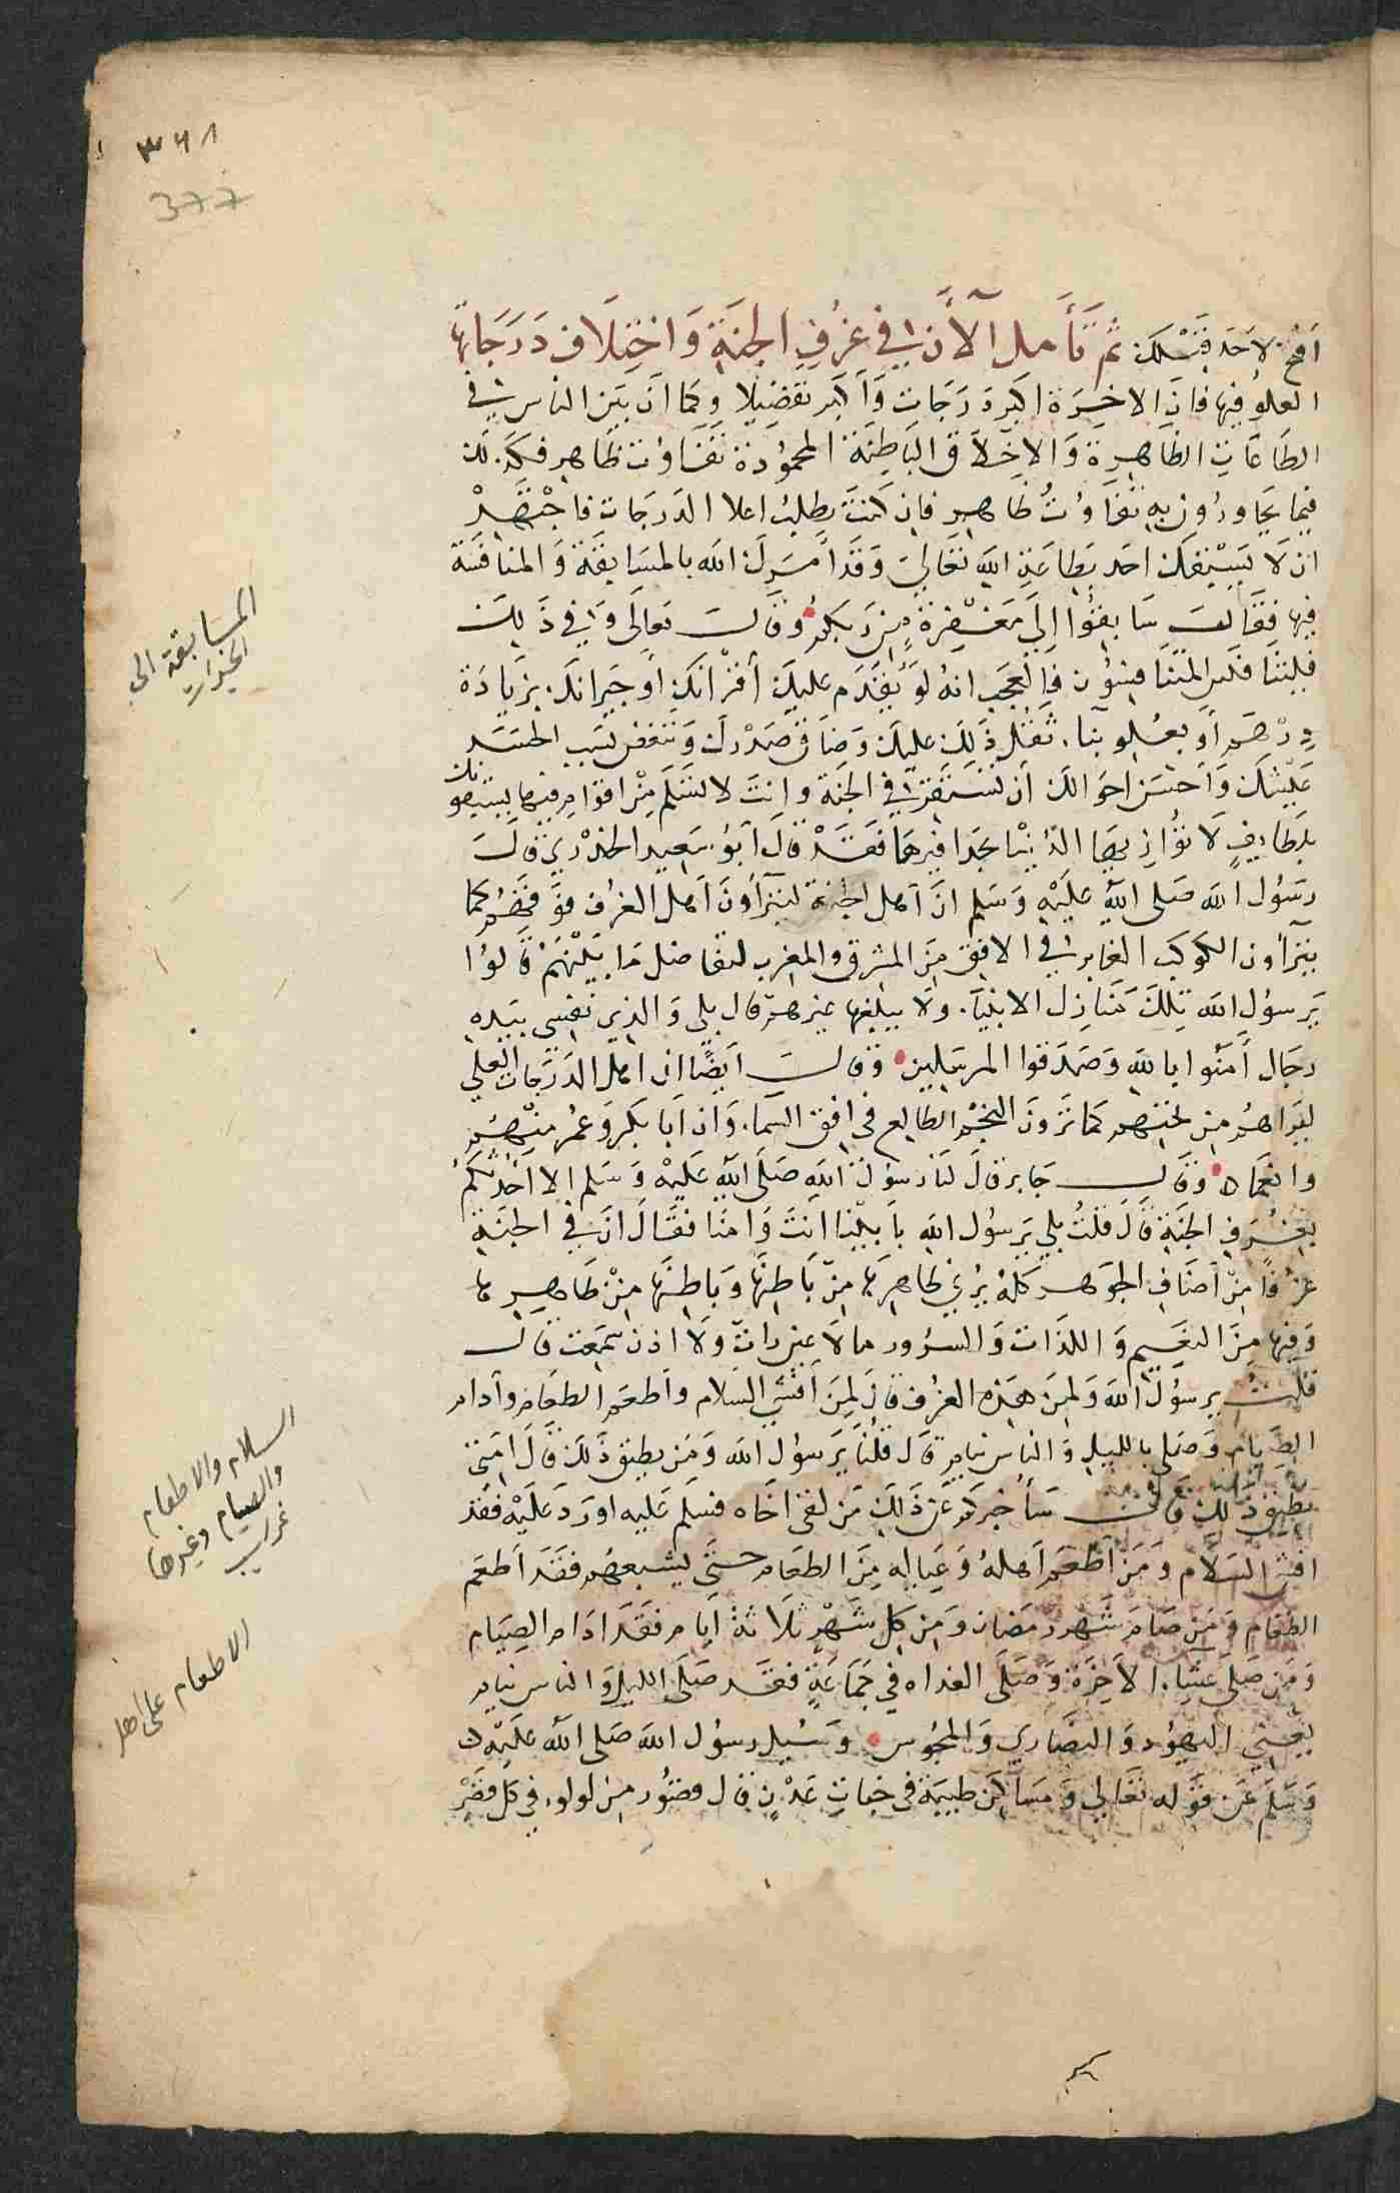 ٣٦١
377
افتح لاحد قبلك ثم تأمل الآن في غرف الجنة واختلاف درجاتها
العلو فيها فان الاخرة اكبر درجات وأكبر تفضيلا وكما ان بين الناس في
الطاعات الظاهرة والاخلاق الباطنة المحمودة تفاوت ظاهر فكذلك
فيما يجاورون به تفاوت ظاهر فان كنت تطلب اعلا الدرجات فاجتهد
ان لا يسبقك احد بطاعة الله تعالى وقد أمرك الله بالمسابقة والمنافسة
فيها فقال سابقوا إلى مغفرة من ربكم وقال تعالى وفي ذلك
فليتنافس المتنافسون فالعجب انه لو تقدم عليك أقرانك أو جيرانك بزيادة
درهم أو بعلو بنآء ثقل ذلك عليك وضاق صدرك وتنغص بسبب الحسد
عيشك وأحسن احوالك أن تستقر في الجنة وانت لا تسلم من اقوام فيها يسبقونك
بلطايف لا توازيها الدنيا بحذافيرها فقد قال أبو سعيد الخدري قال
رسول الله صلى الله عليه وسلم ان اهل الجنة ليترآون أهل الغرف فوقهم كما
يتراون الكوكب الغابر في الافق من المشرق والمغرب لتفاضل ما بينهم قالوا
يرسول الله تلك منازل الانبيآء ولا يبلغها غيرهم قال بلى والذي نفسي بيده
رجال أمنوا بالله وصدقوا المرسلين وقال أيضا ان اهل الدرجات العلى
ليراهم من تحتهم كما ترون النجم الطالع في افق السمآء وان ابا بكر وعمر منهم
وانعما ه وقال جابر قال لنا رسول الله صلى الله عليه وسلم الا أحدثكم
بغرف الجنة قال قلت بلى يرسول الله بأبينا انت وأمنا فقال ان في الجنة
غرفا من أصناف الجوهر كله يرى ظاهرها من باطنها وباطنها من ظاهرها
وفيها من النعيم واللذات والسرور مالا عين رات ولا اذن سمعت قال
قلت يرسول الله ولمن هذه الغرف قال لمن أفشى السلام وأطعم الطعام وأدام
الصيام وصلى بالليل والناس نيام قال قلنا يرسول الله ومن يطيق ذلك قال امتي
تطيق ذلك وسأخبركم عن ذلك من لقى اخاه فسلم عليه اورد عليه فقد
افشى السلام ومن أطعم أهله وعياله من الطعام حتى يشبعهم فقد أطعم
الطعام ومن صام شهر رمضان ومن كل شهر ثلاثة أيام فقد ادام الصيام
ومن صلى عشآء الآخرة وصلى الغداه في جماعة فقد صلى الليل والناس نيام
يعني اليهود والنصارى والمجوس وسئل رسول الله صلى الله عليه
وسلم عن قوله تعالى ومساكن طيبة في جنات عدن قال قصور من لولو في كل قصر
المسابقة الى
الخيرات
السلام والاطعام
والصيام وغيرها
غريب
الاطعام على اهل